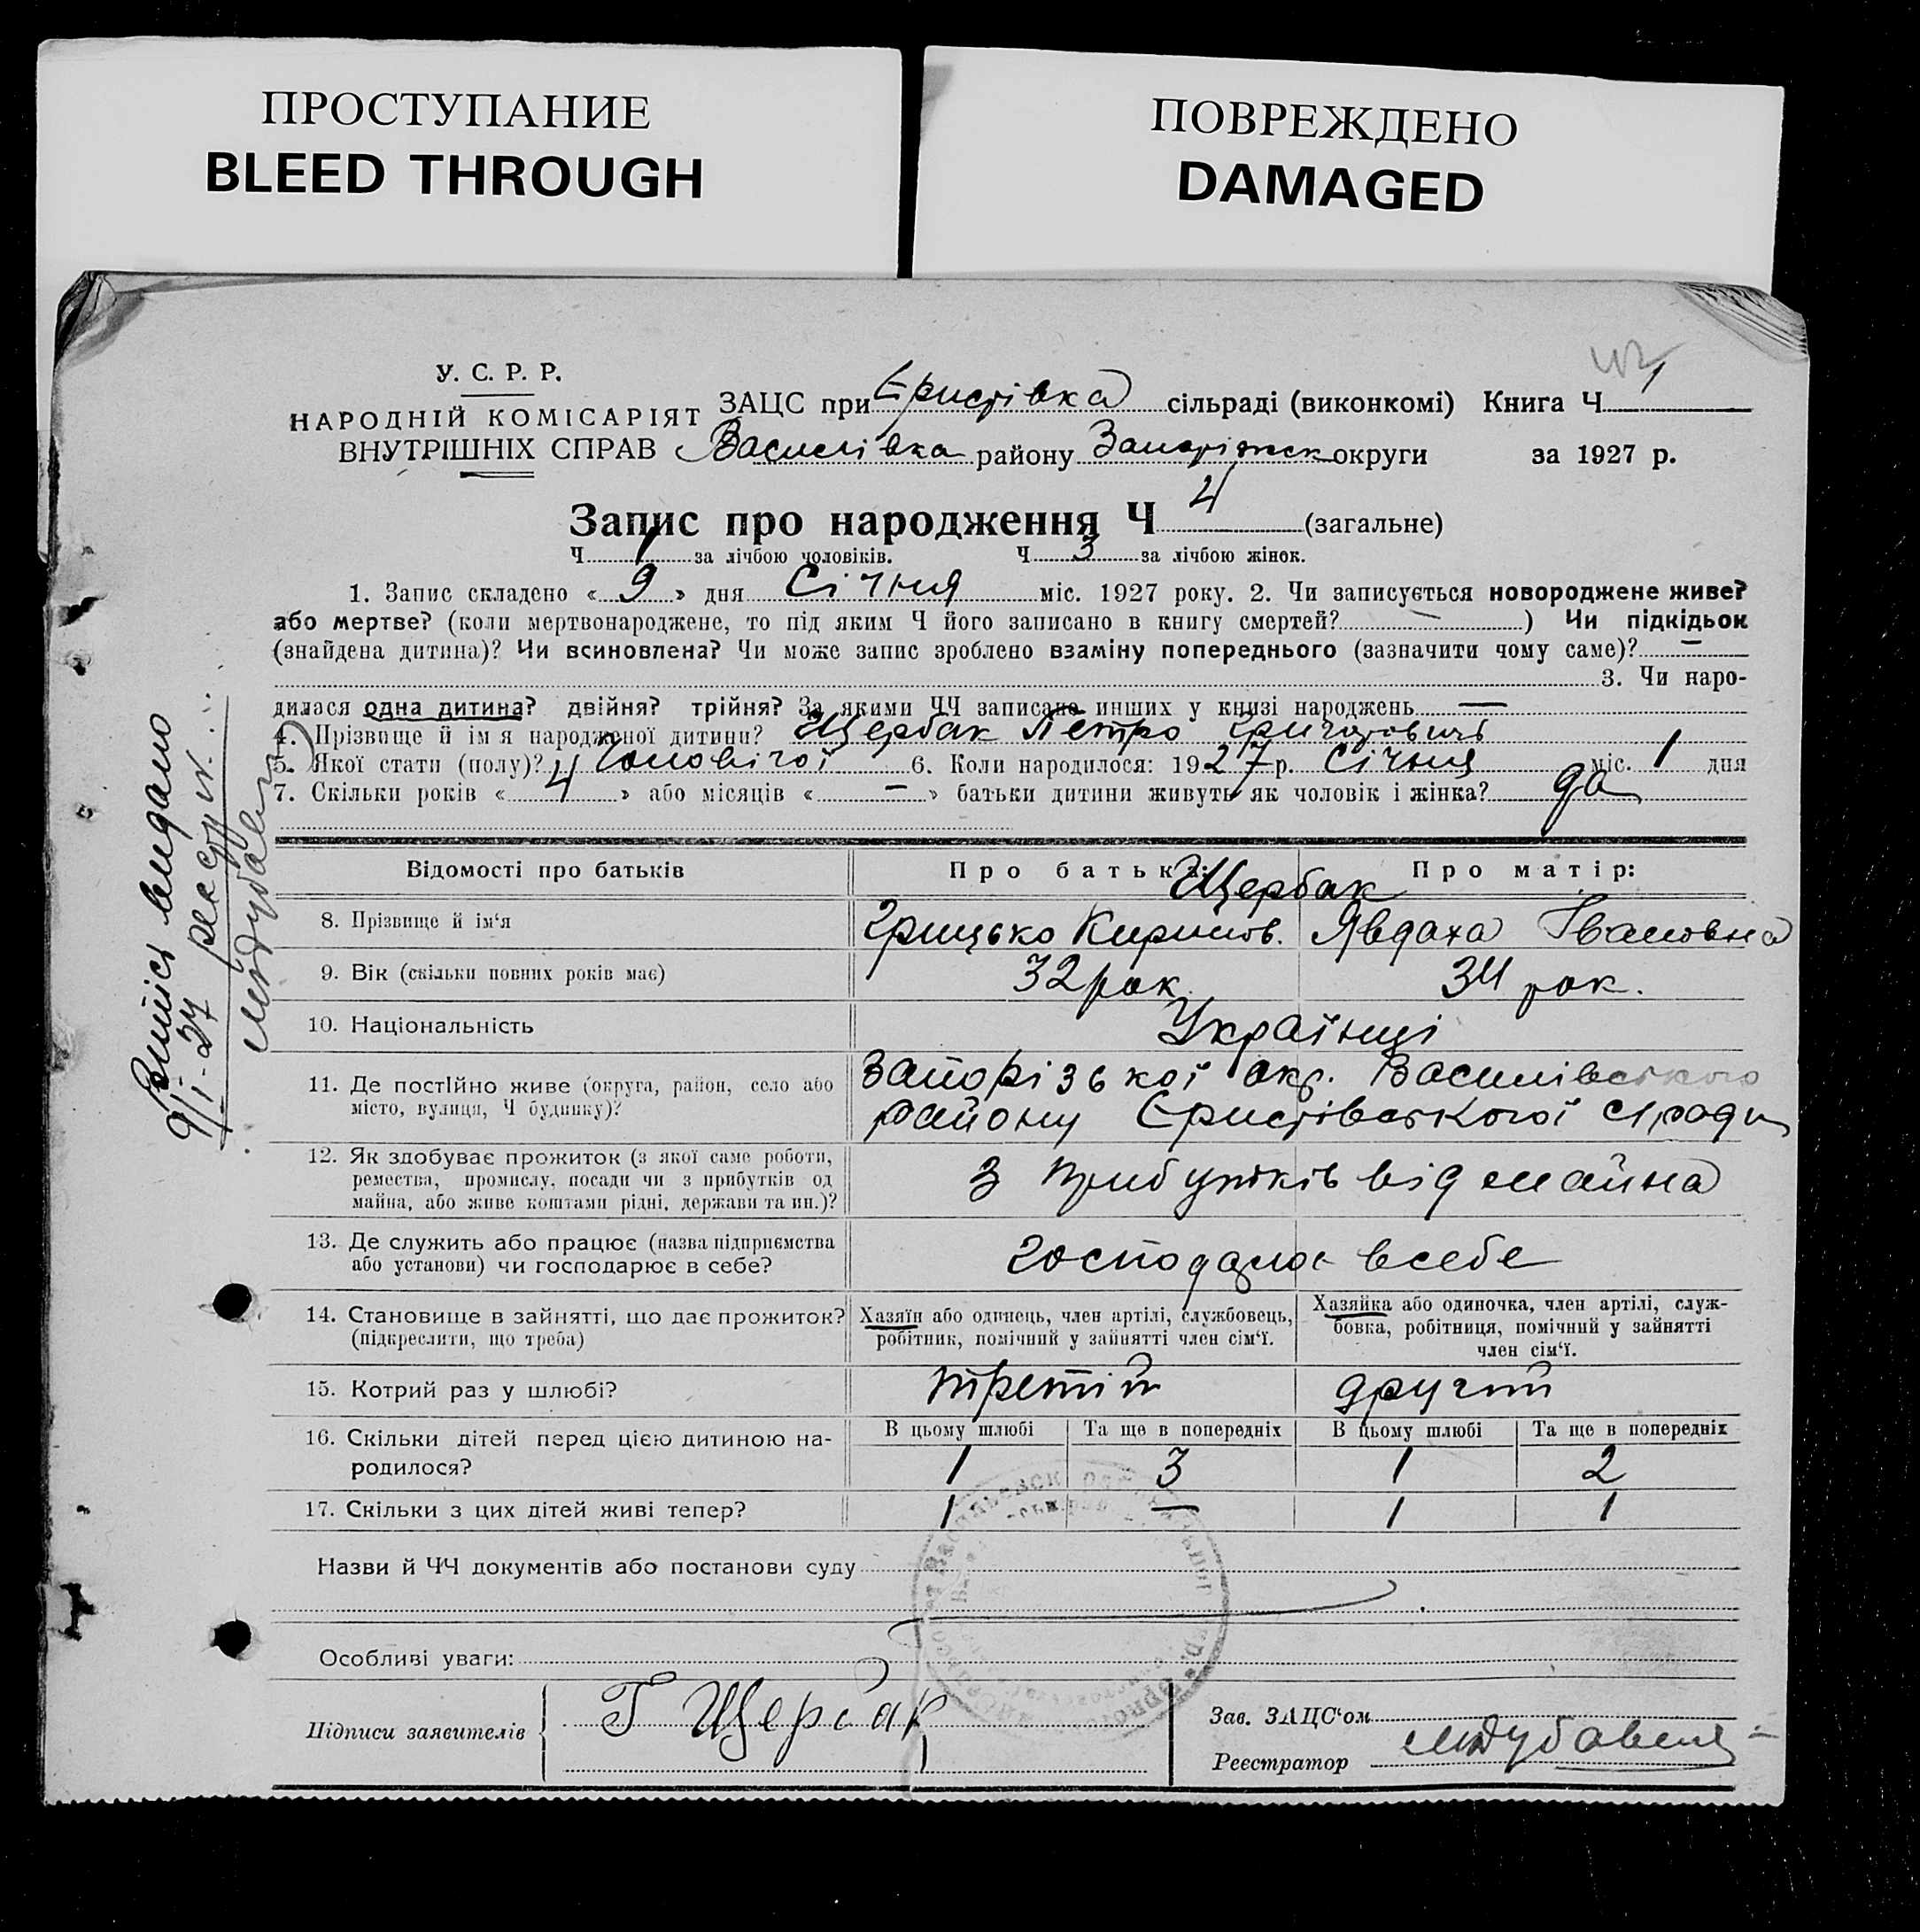 ПРОСТУПАНИЕ
BLEED THROUGH
ПОВРЕЖДЕНО
DAMAGED
У. С. Р. Р.
НАРОДНІЙ КОМІСАРІЯТ
ВНУТРІШНІХ СПРАВ
ЗАЦС при Єристівка сільраді (виконкомі) Книга Ч 1
Василівка району Запоріжск округи за 1927 р.
Запис про народження Ч 4 (загальне)
Ч 1 за лічбою чоловіків. Ч 3 за лічбою жінок.
1. Запис складено « 9 » дня Січня міс. 1927 року. 2. Чи записується новороджене живе?
або мертве? (коли мертвонароджене, то під яким Ч його записано в книгу смертей? —) Чи підкідьок
(знайдена дитина)? Чи всиновлена? Чи може запис зроблено взаміну попереднього (зазначити чому саме)? —
3. Чи наро-
дилася одна дитина? двійня? трійня? За якими ЧЧ записано инших у книзі народжень —
4. Прізвище й імя народженої дитини? Щербак Петро Григорович
5. Якої стати (полу)? Чоловічої 6. Коли народилося: 1927 р. Січня міс. 1 дня
7. Скільки років « 4 » або місяців « — » батьки дитини живуть як чоловік і жінка? да
Відомості про батьків
Про батька:
Про матір:
Щербак
8. Прізвище й ім'я
Грицько Кирилов.
Явдаха Івановна
9. Вік (скільки повних років має)
32 рок.
34 рок.
10. Національність
Українці
11. Де постійно живе (округа, район, село або
місто, вулиця, Ч будинку)?
Запорізької окр. Василівського
району Єристівської с/ради
12. Як здобуває прожиток (з якої саме роботи,
ремества, промислу, посади чи з прибутків од
майна, або живе коштами рідні, держави та ин.)?
З прибутків від майна
13. Де служить або працює (назва підприємства
або установи) чи господарює в себе?
господарює в себе
14. Становище в зайнятті, що дає прожиток?
(підкреслити, що треба)
Хазяїн або одинець, член артілі, службовець,
робітник, помічний у зайнятті член сім'ї.
Хазяйка або одиночка, член артілі, служ-
бовка, робітниця, помічний у зайнятті
член сім'ї.
15. Котрий раз у шлюбі?
третій
другий
16. Скільки дітей перед цією дитиною на-
родилося?
В цьому шлюбі
Та ще в попередніх
В цьому шлюбі
Та ще в попередніх
1
3
1
2
17. Скільки з цих дітей живі тепер?
1
—
1
1
Назви й ЧЧ документів або постанови суду
Особливі уваги:
Підписи заявителів
Г Щербак
Зав. ЗАЦС'ом
Реєстратор
Випись видано
9/I-27